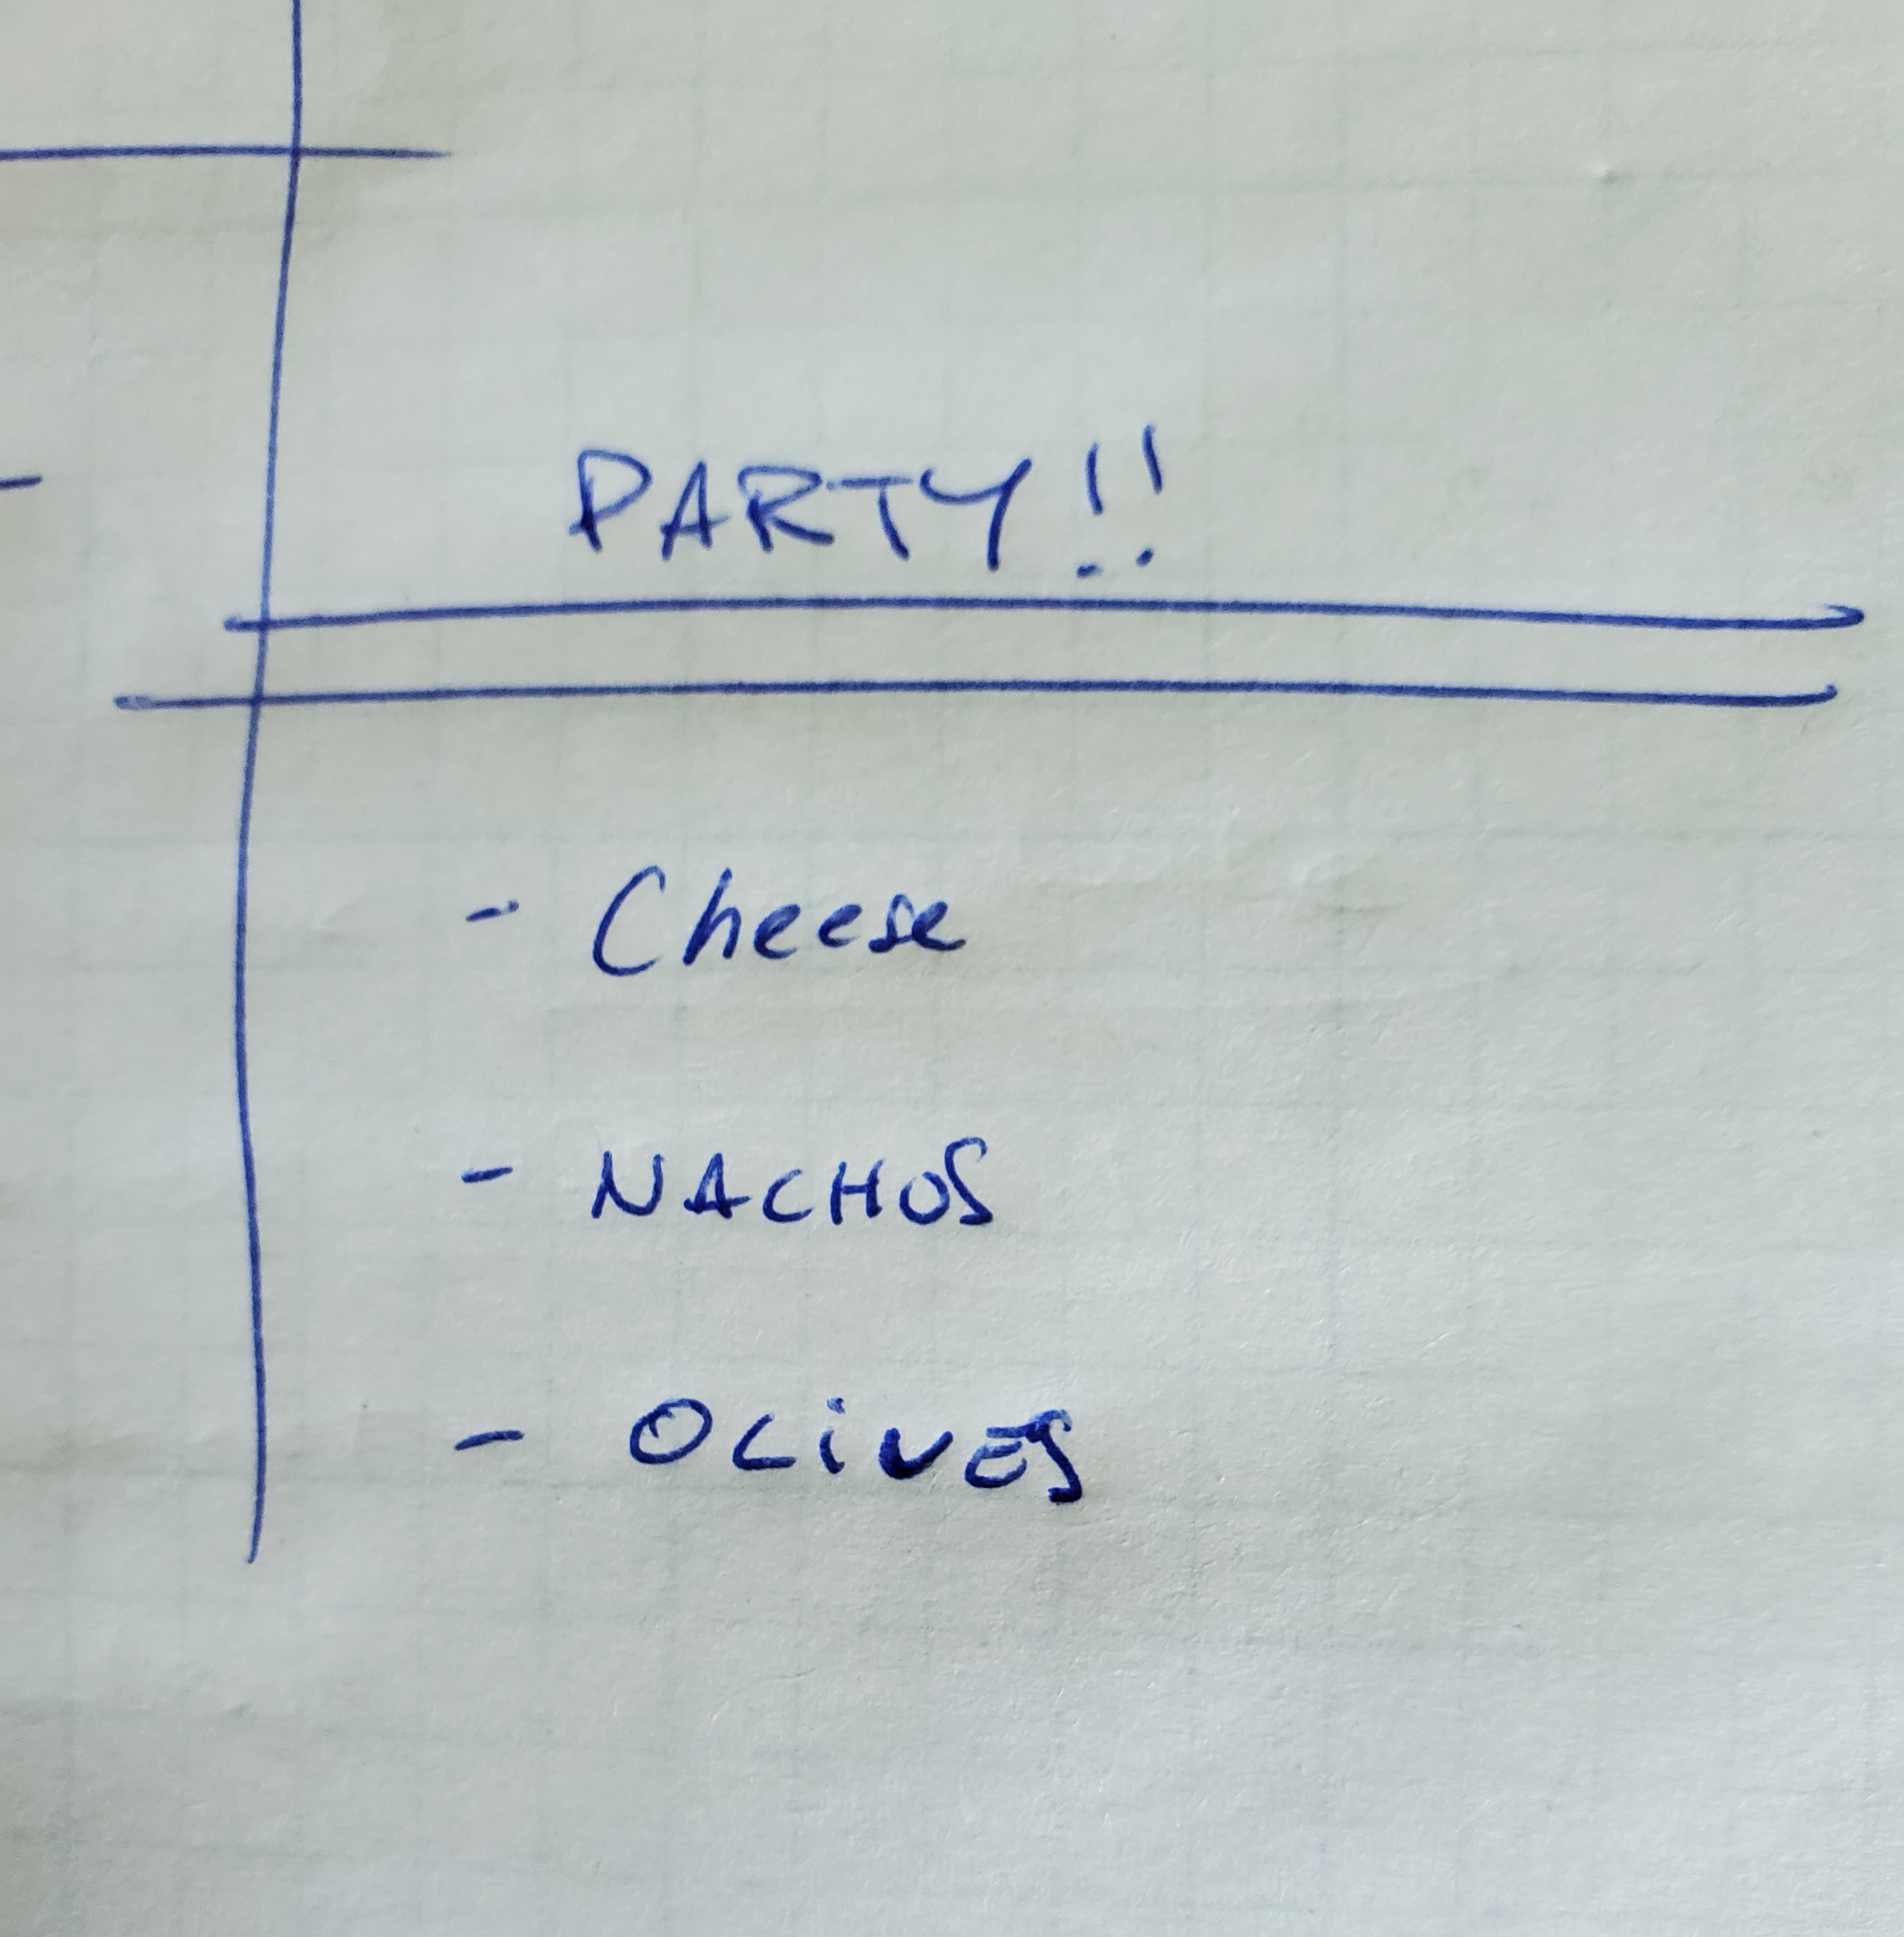 PARTY!!
- Cheese
- NACHOS
- OLiVES